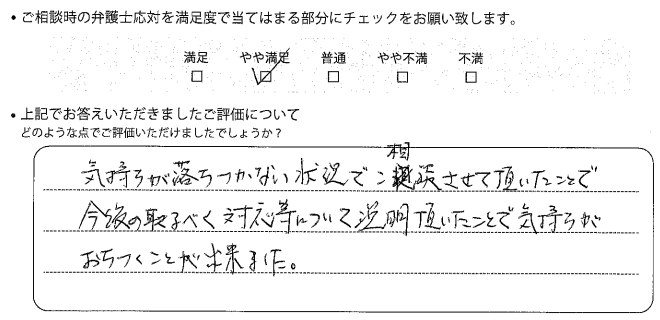 • ご相談時の弁護士応対を満足度で当てはまる部分にチェックをお願い致します。
満足 やや満足 普通 やや不満 不満
□ ☑ □ □ □
• 上記でお答えいただきましたご評価について
どのような点でご評価いただけましたでしょうか？
気持ちが落ちつかない状況でご相談させて頂いたことで
今後の取るべく対応等について説明頂いたことで気持ちが
おちつくことが出来ました。